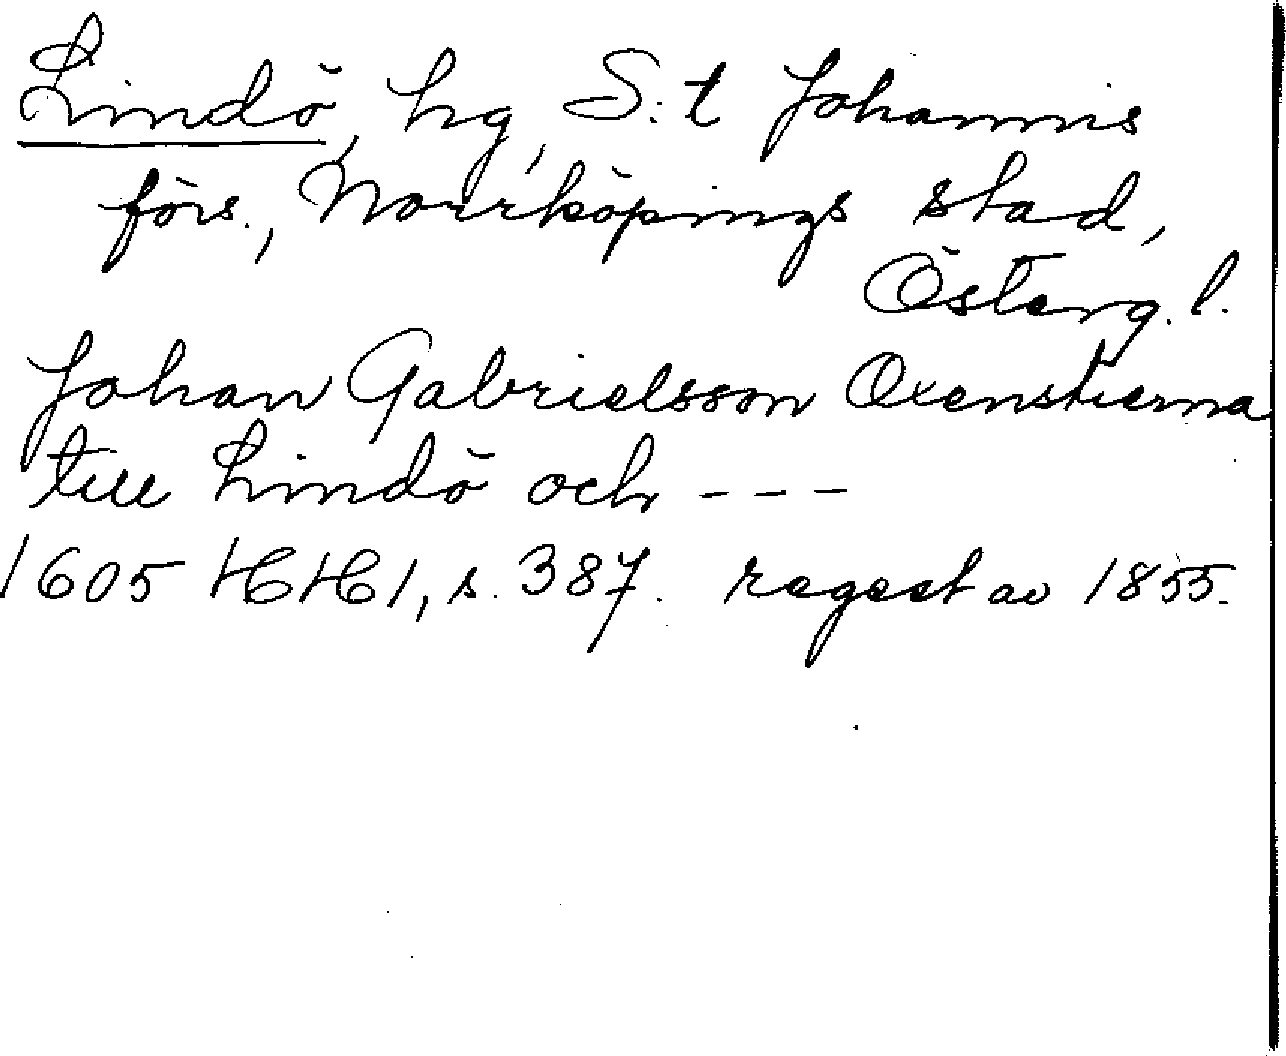 Lindö, hg, S:t Johannis
förs., Norrköpings stad,
Österg. l.
Johan Gabrielsson Oxenstierna
till Lindö och - - -
1605 HH 1, s. 387. regest av 1855.